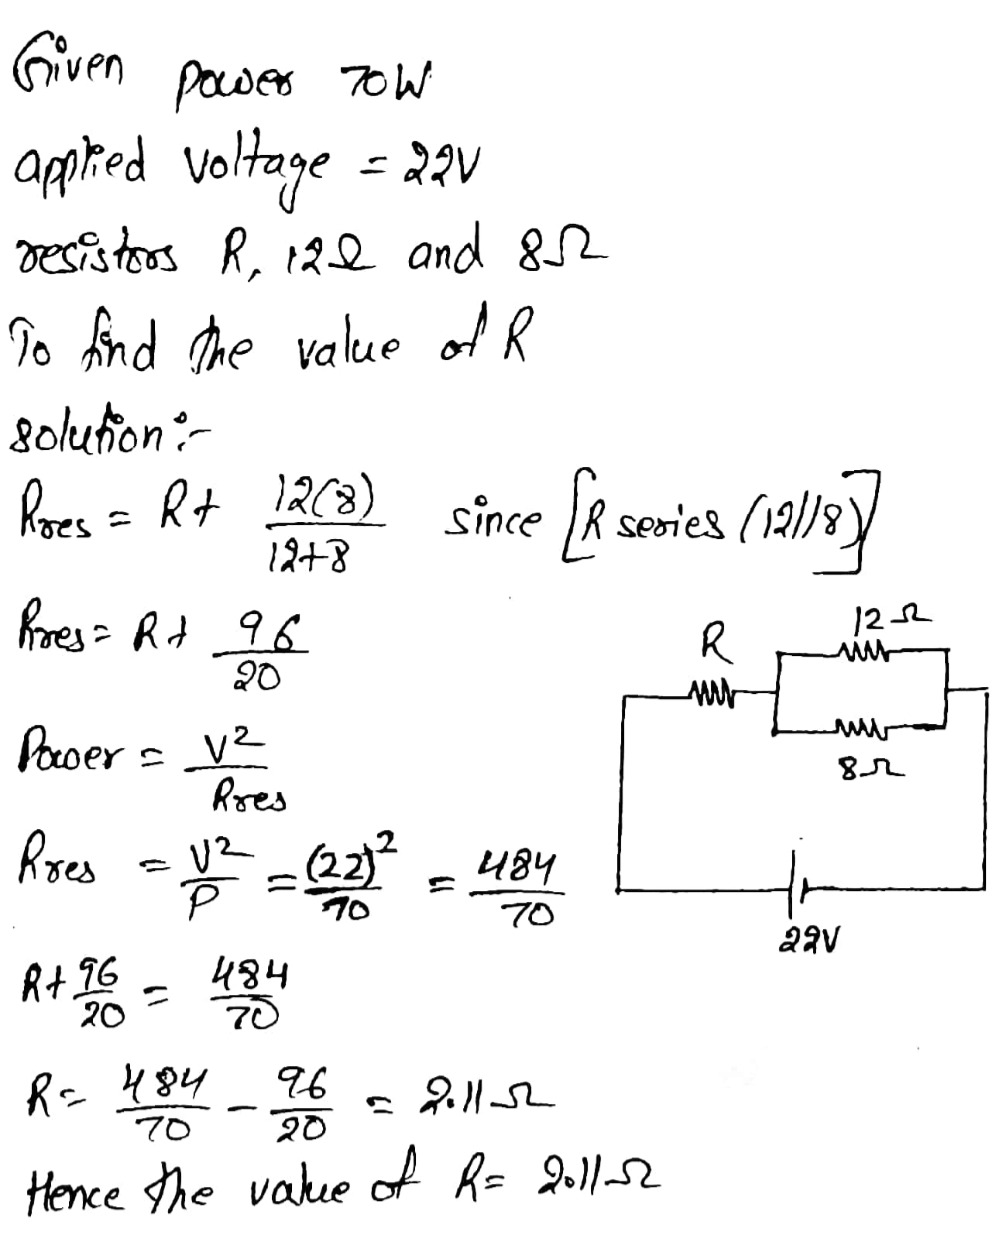 Given power 70W
applied voltage = 22V
resistors R, 12Ω and 8Ω
To find the value of R
solution:-
Rres = R+ 12(8)/12+8 since [R series (12//8)]
Rres = R+ 96/20
R
12Ω
8Ω
22V
Power = V²/Rres
Rres = V²/P = (22)²/70 = 484/70
R+ 96/20 = 484/70
R= 484/70 - 96/20 = 2.11Ω
Hence the value of R= 2.11Ω